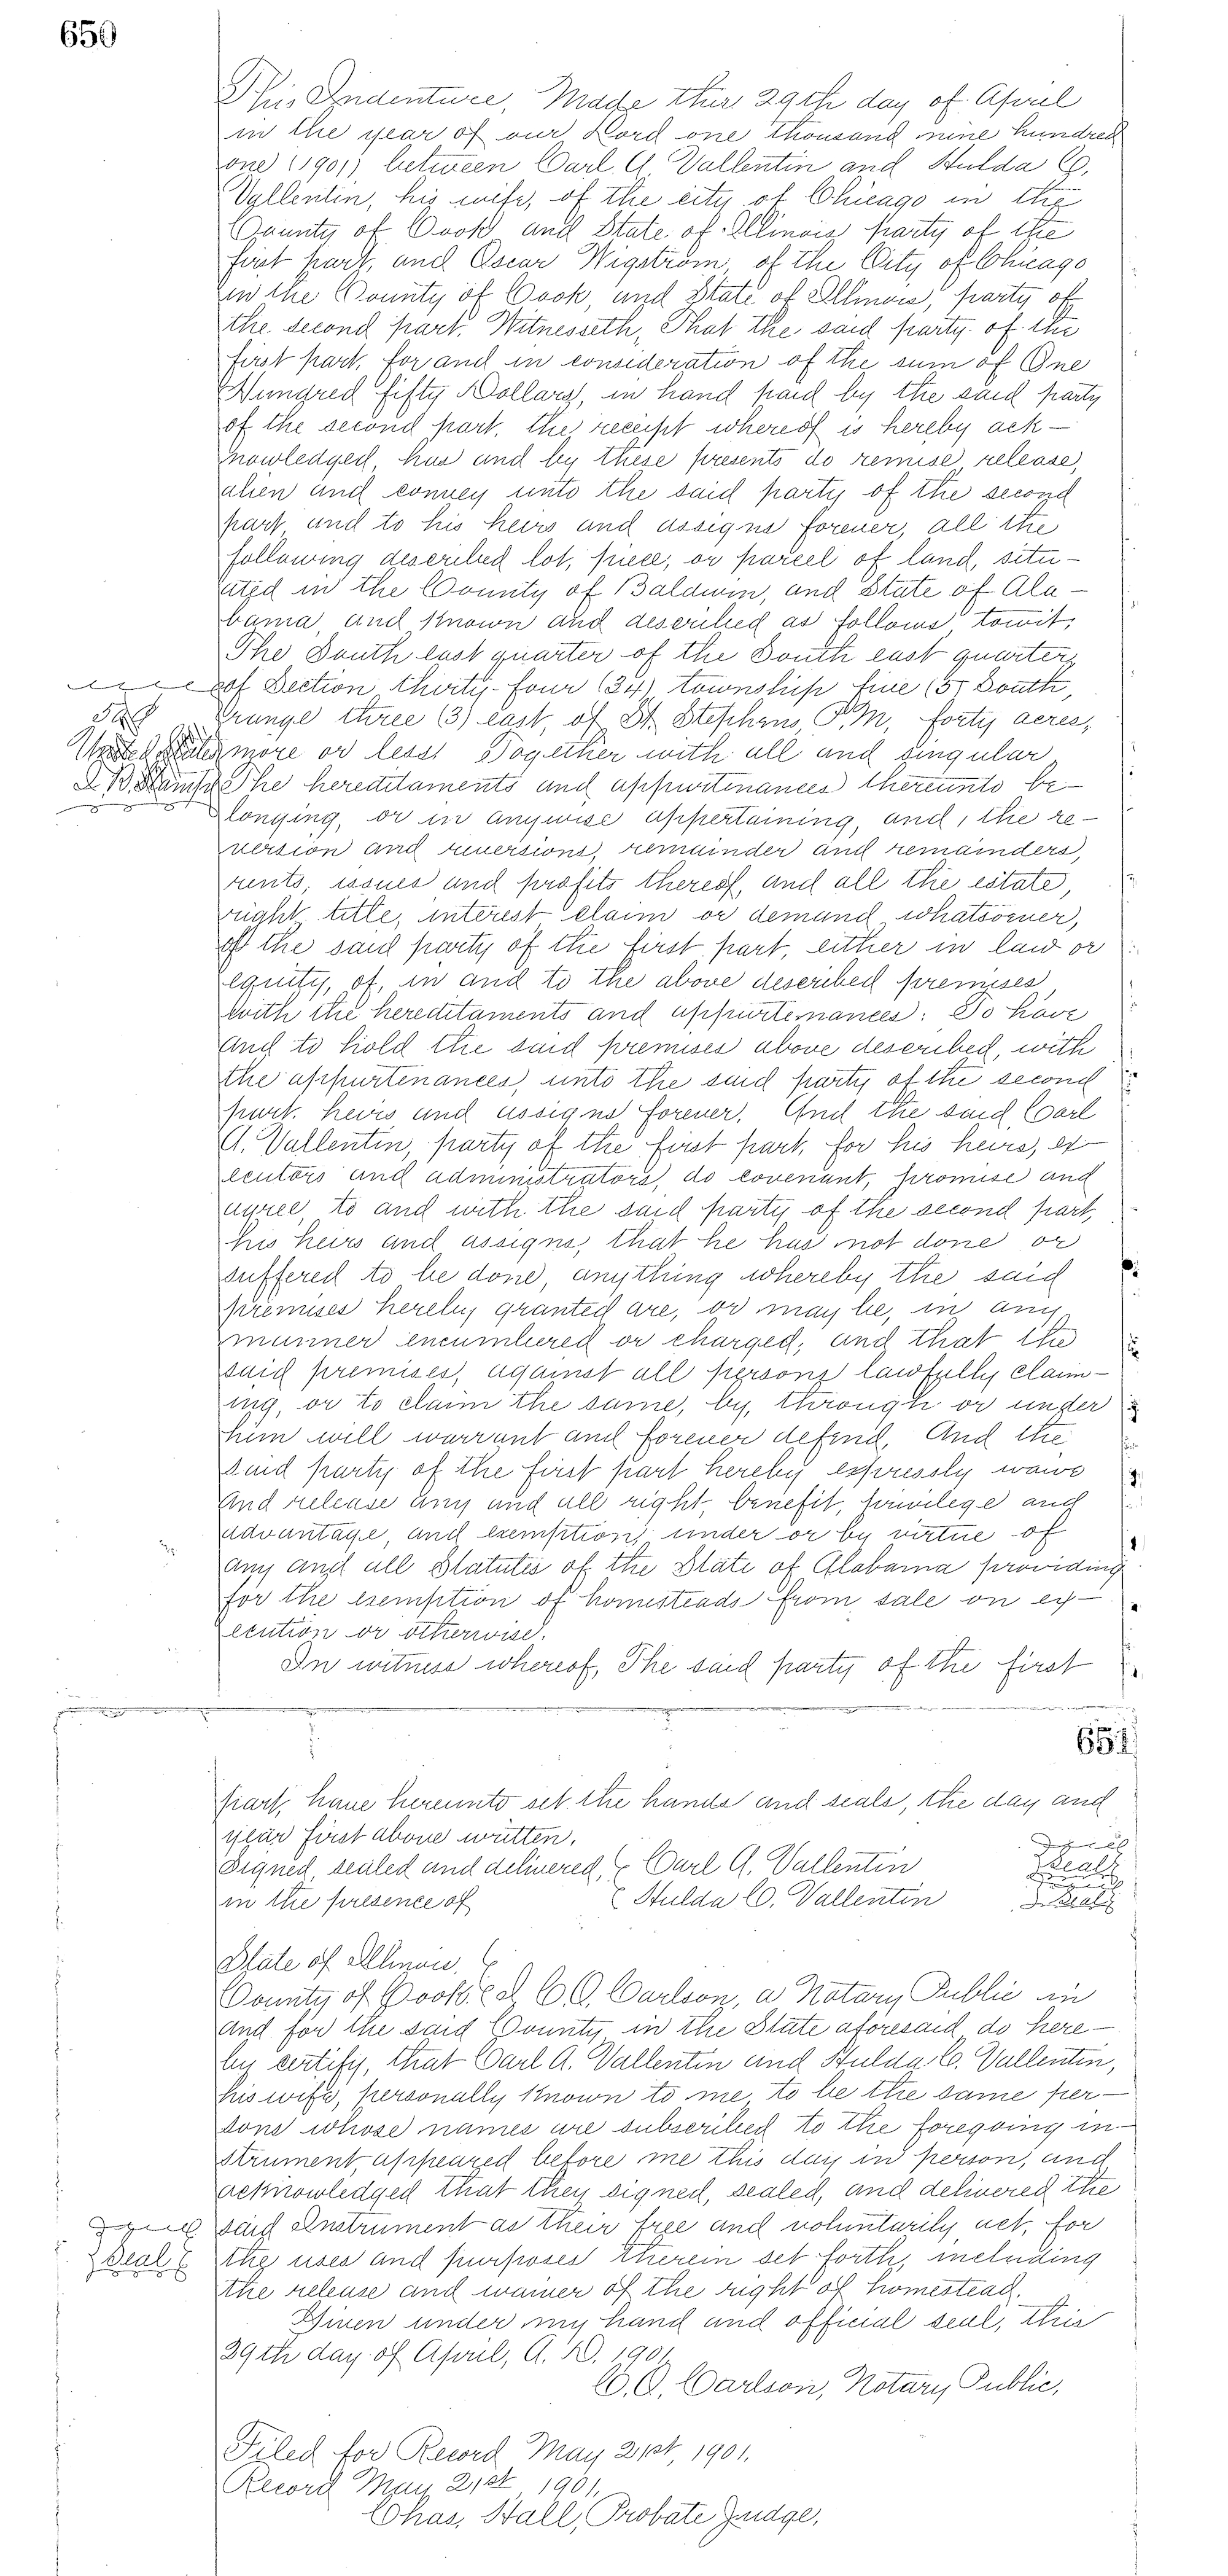 650
This Indenture, Made this 29th day of April
in the year of our Lord one thousand nine hundred
one (1901), between Carl A. Vallentin and Hulda C.
Vallentin, his wife, of the city of Chicago in the
County of Cook and State of Illinois party of the
first part, and Oscar Wigstrom, of the City of Chicago
in the County of Cook, and State of Illinois, party of
the second part. Witnesseth, That the said party of the
first part, for and in consideration of the sum of One
Hundred fifty Dollars, in hand paid by the said party
of the second part, the receipt whereof is hereby ack-
nowledged, has and by these presents do remise, release,
alien and convey unto the said party of the second
part, and to his heirs and assigns forever, all the
following described lot, piece, or parcel of land, situ-
ated in the County of Baldwin, and State of Ala-
bama, and known and described as follows, towit;
The South east quarter of the South east quarter,
of Section thirty-four (34) township five (5) South,
range three (3) east, of St. Stephens, P.M, forty acres,
50¢
United States more or less: Together with all and singular
I. R. Stamp The hereditaments and appurtenances thereunto be-
longing, or in anywise appertaining, and, the re-
version and reversions, remainder and remainders,
rents, issues and profits thereof, and all the estate,
right, title, interest claim or demand whatsoever,
of the said party of the first part, either in law or
equity, of, in and to the above described premises,
with the hereditaments and appurtenances: To have
and to hold the said premises above described, with
the appurtenances, unto the said party of the second
part. heirs and assigns forever. And the said Carl
A. Vallentin, party of the first part, for his heirs, ex-
ecutors and administrators, do covenant, promise and
agree, to and with the said party of the second part,
his heirs and assigns, that he has not done or
suffered to be done, anything whereby the said
premises hereby granted are, or may be, in any
manner encumbered or charged; and that the
said premises, against all persons lawfully claim-
ing, or to claim the same, by, through or under
him will warrant and forever defend, And the
said party of the first part hereby expressly waive
and release any and all right, benefit, privilege and
advantage, and exemption, under or by virtue of
any and all Statutes of the State of Alabama providing
for the exemption of homesteads from sale on ex-
ecution or otherwise.
In witness whereof, The said party of the first
651
part, have hereunto set the hands and seals, the day and
year first above written.
Signed, sealed and delivered, Carl A. Vallentin Seal
in the presence of Hulda C. Vallentin Seal
State of Illinois.
County of Cook. I C.O. Carlson, a Notary Public in
and for the said County in the State aforesaid do here-
by certify, that Carl A. Vallentin and Hulda C. Vallentin,
his wife, personally known to me, to be the same per-
sons whose names are subscribed to the foregoing in-
strument, appeared before me this day in person, and
acknowledged that they signed, sealed, and delivered the
said Instrument as their free and voluntarily act, for
Seal the uses and purposes therein set forth, including
the release and waiver of the right of homestead.
Given under my hand and official seal, this
29th day of April, A. D. 1901
C.O. Carlson, Notary Public,
Filed for Record May 21st, 1901.
Record May 21st 1901,
Chas, Hall, Probate Judge.